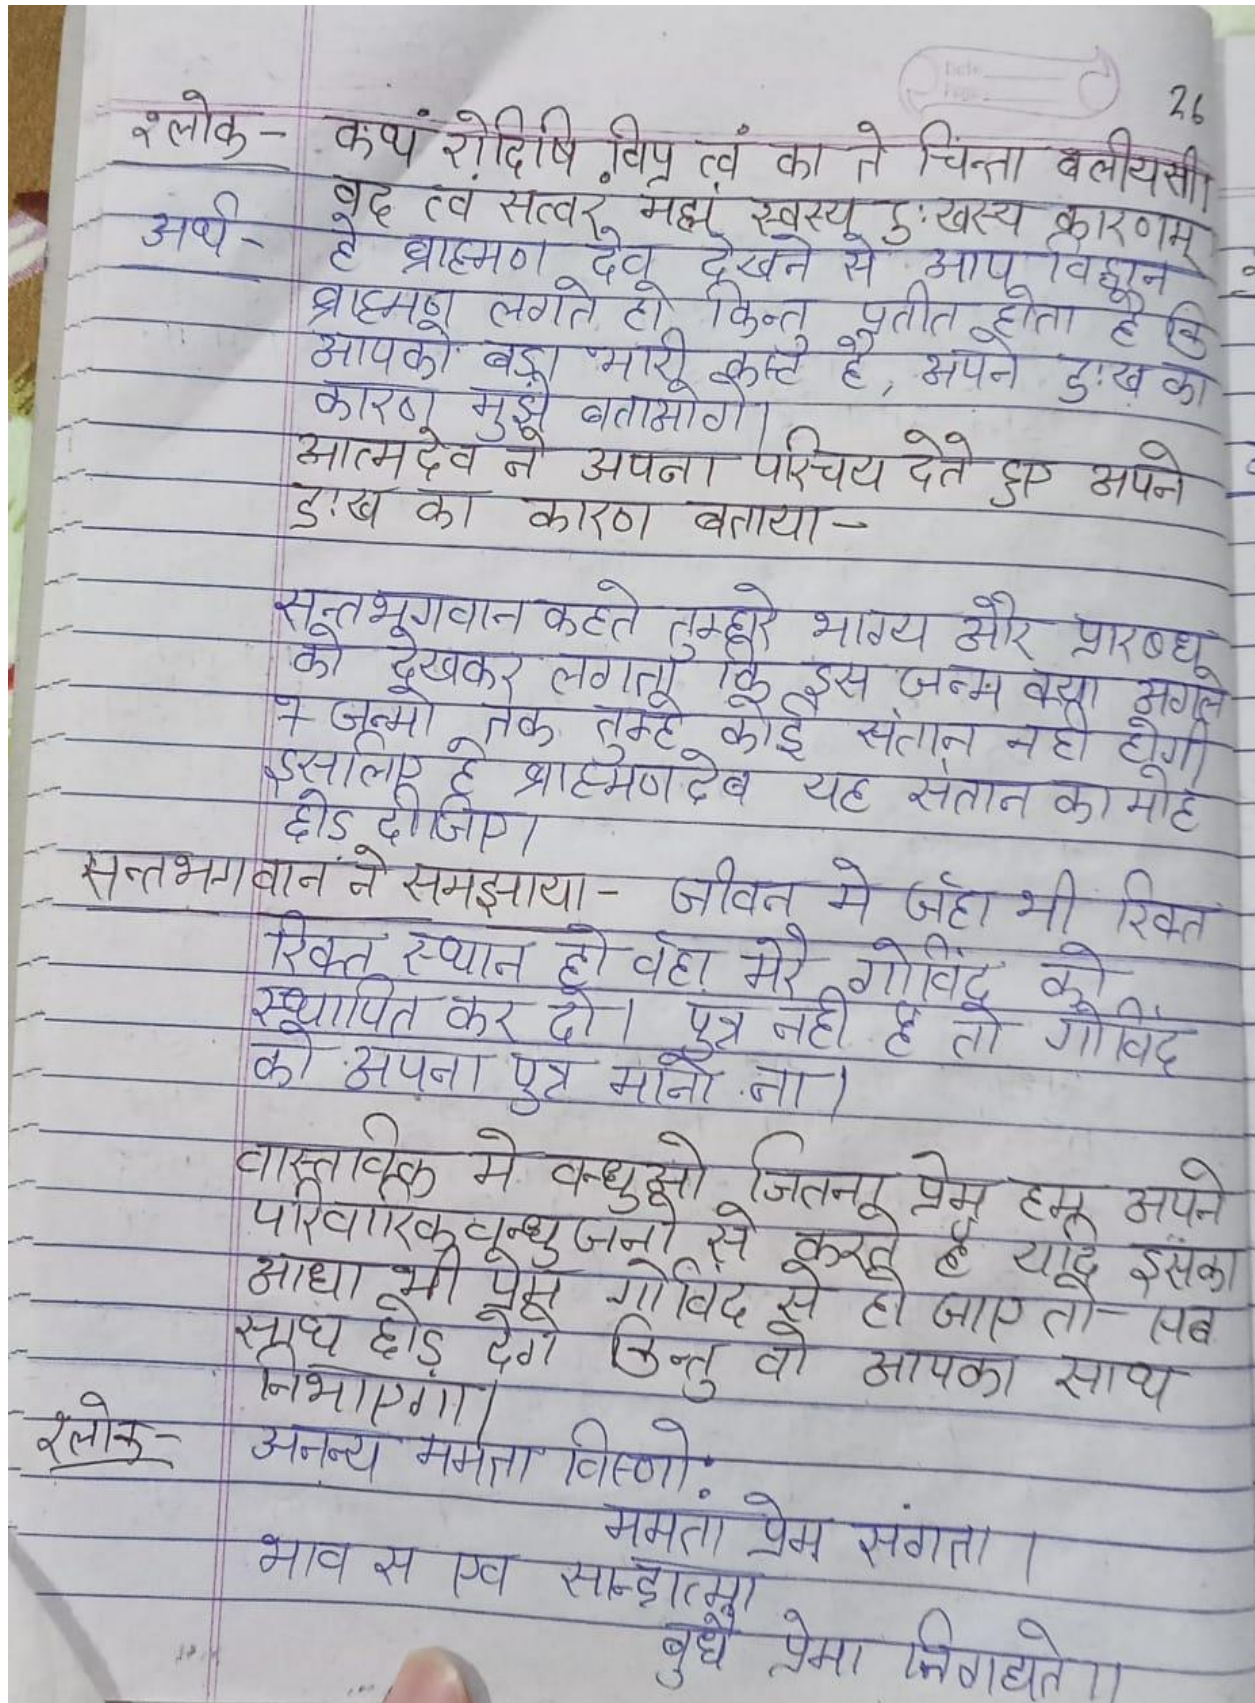 26
श्लोक - कथं रोदिषि विप्र त्वं का ते चिंन्ता बलीयसी।
वद त्वं सत्वरं मह्यं स्वस्य दुःखस्य कारणम्
अर्थ - हे ब्राह्मण देव देखने से आप विद्वान
ब्राह्मण लगते हो किन्तु प्रतीत होता है कि
आपको बड़ा भारी कष्ट है, अपने दुःख का
कारण मुझे बताओगे।
आत्मदेव ने अपना परिचय देते हुए अपने
दुःख का कारण बताया -
सन्तभगवान कहते तुम्हारे भाग्य और प्रारब्ध
को देखकर लगता कि इस जन्म क्या अगले
7 जन्मो तक तुम्हे कोई संतान नही होगी
इसलिए हे ब्राह्मणदेव यह संतान का मोह
छोड दीजिए।
सन्तभगवान ने समझाया - जीवन मे जॅहा भी रिक्त
रिक्त स्थान हो वॅहा मेरे गोविंद को
स्थापित कर दो। पुत्र नही है तो गोविंद
को अपना पुत्र मानो ना।
वास्तविक मे बन्धुओ जितना प्रेम हम अपने
परिवारिक बन्धु जनो से करते है यदि इसका
आधा भी प्रेम गोविंद से हो जाए तो सब
साथ छोड़ देगे किन्तु वो आपका साथ
निभाएगा।
श्लोक - अनन्य ममता विष्णो:
ममता प्रेम संगता।
भाव स एव सान्द्रात्मा
बुधै प्रेमा निगद्यते॥